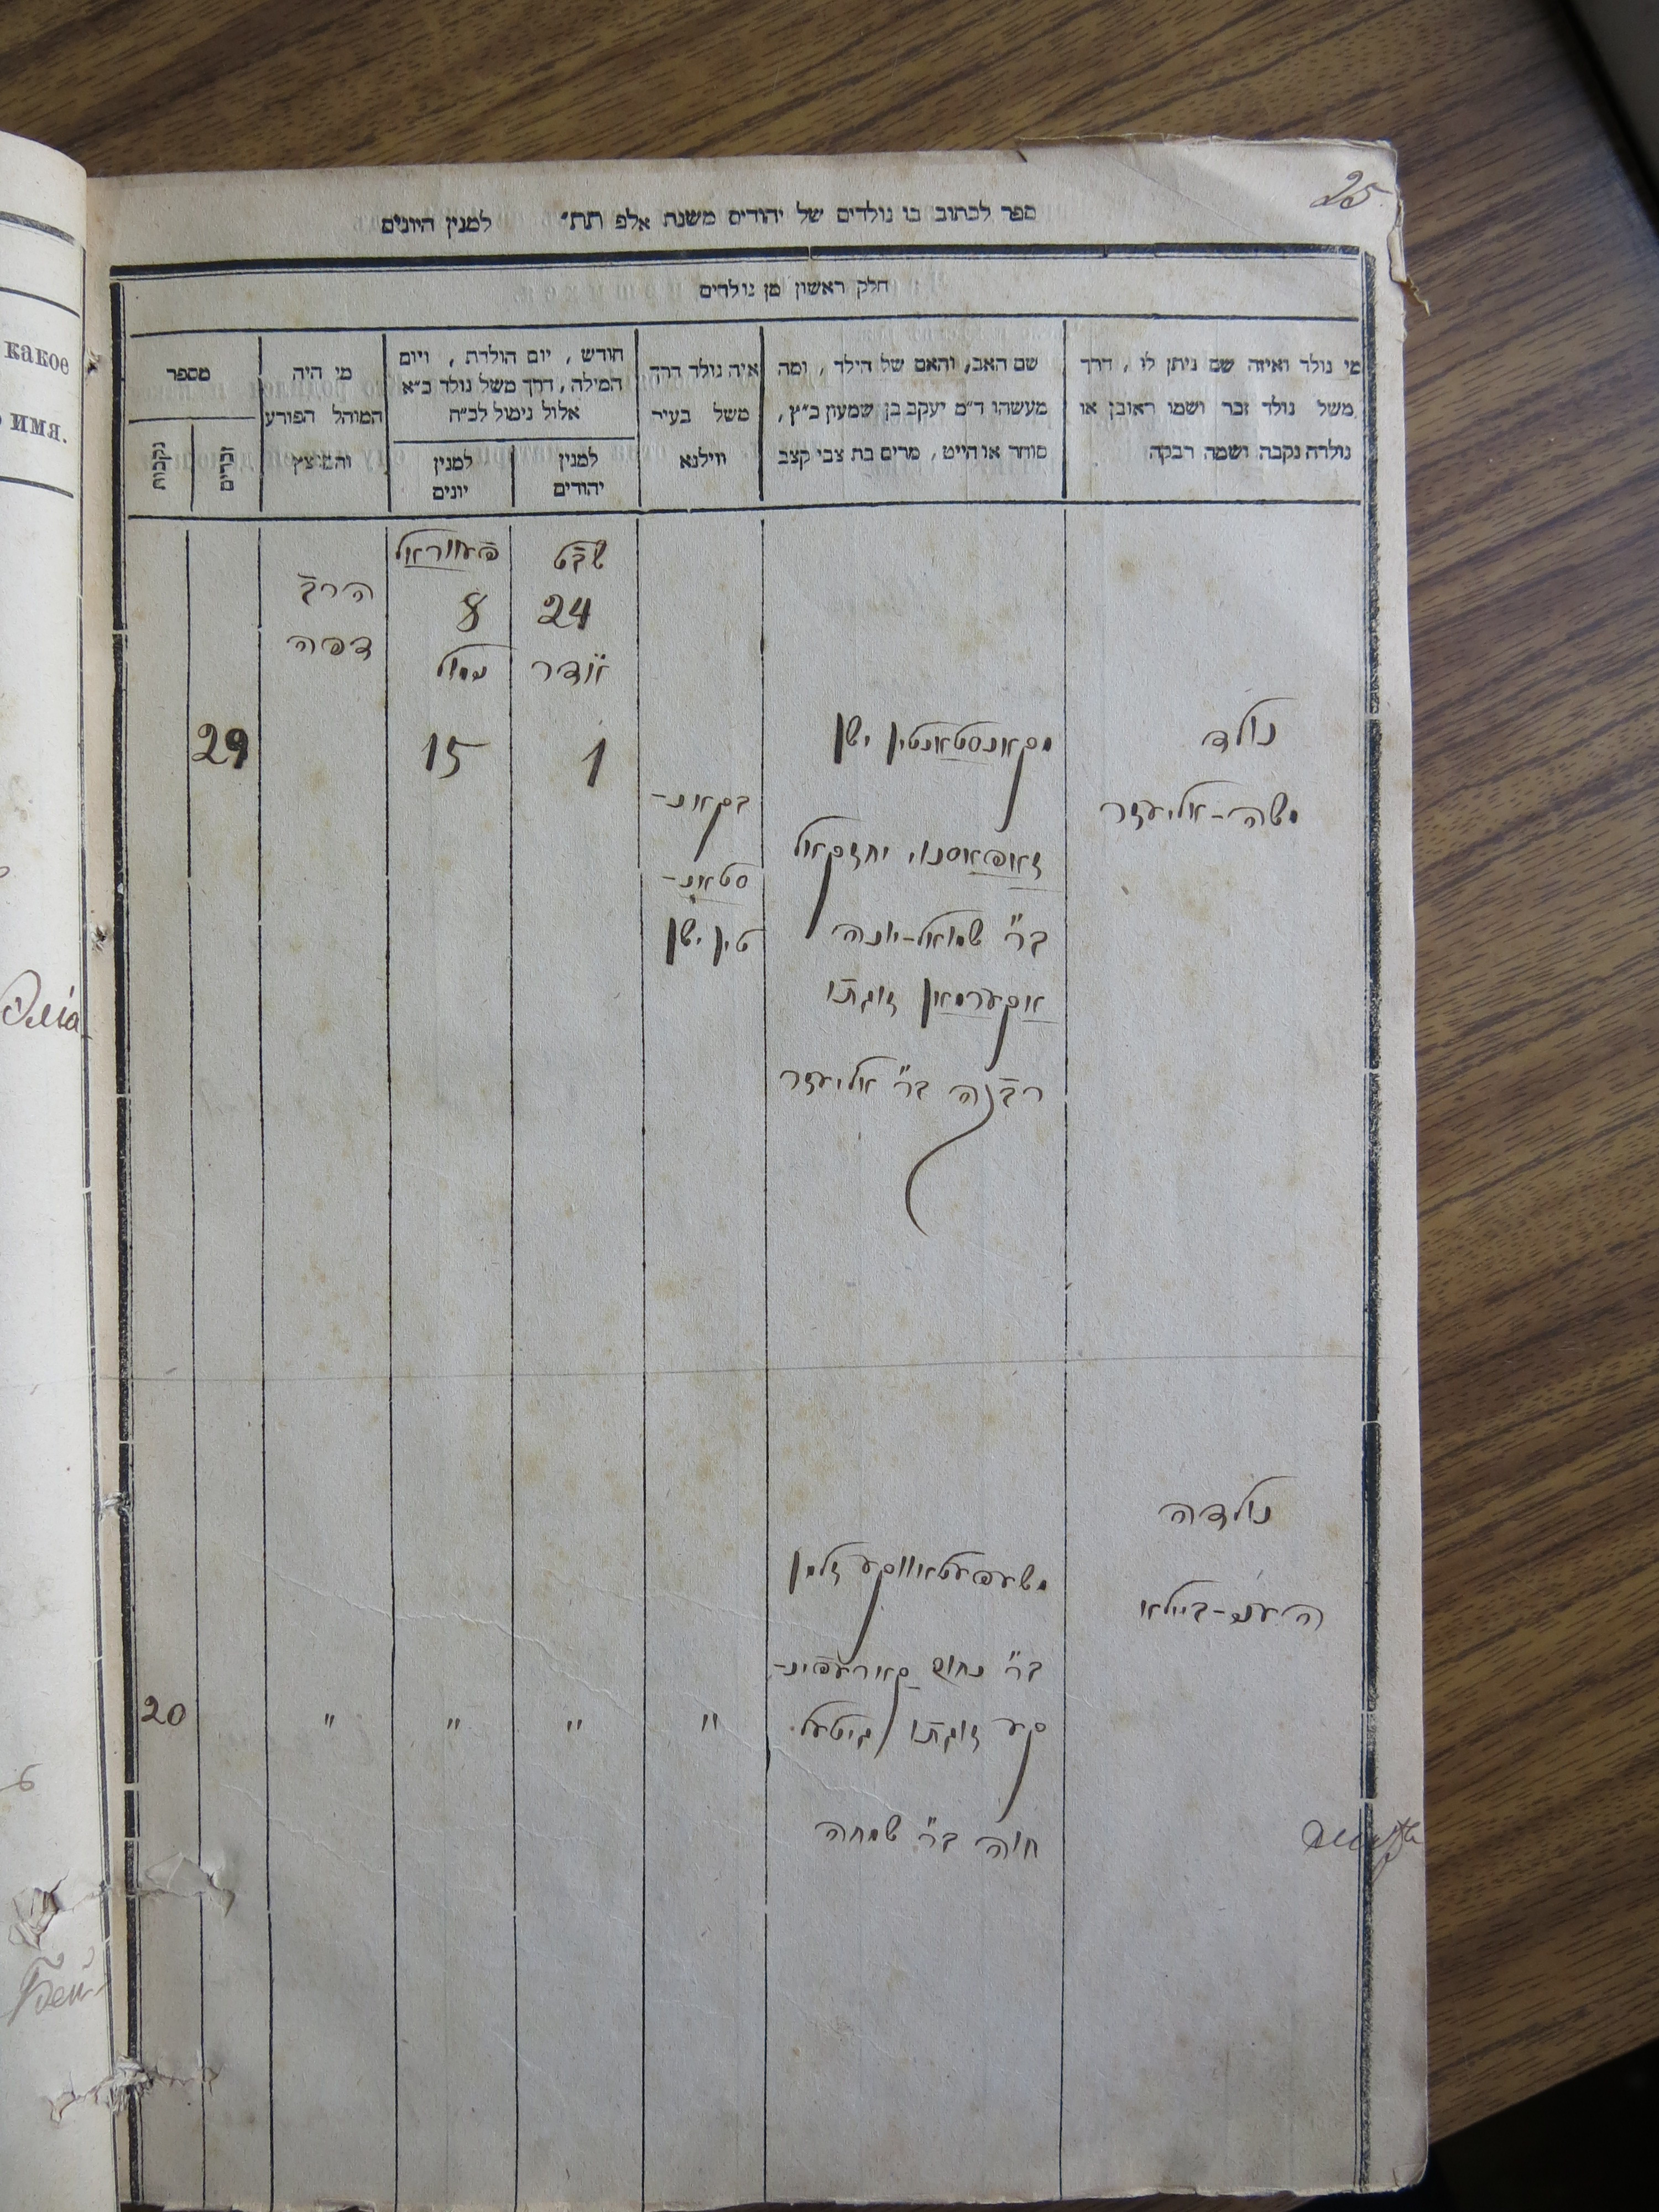 25
ספר לכתוב בו נולדים של יהודים משנת אלפ תת״ למנין היונים
חלק ראשון מן נולדים
מי נולד ואיזה שם ניתן לו , דרך
משל נולד זכר ושמו ראובן או
נולדה נקבה ושמה רבקה
שם האב, והאם של הילד , ומה
מעשהו ד״מ יעקב בן שמעון כ״ץ,
סוחר או חייט , מרים בת צבי קצב
איה נולד דרך
משל בעיר
ווילנא
חודש , יום הולדת , ויום
המילה, דרך משל נולד כ״א
אלול נימול לכ״ח
למנין
יהודים
למנין
יונים
מי היה
המוהל הפורע
והמוצץ
מספר
זכרים
נקבות
נולד
משה-אליעזר
מקאנסטאנטין ישן
יחזקאל
בר״ שמואל-יונה
אקערמאן זוגתו
בר״ אליעזר
בקאנ-
סטאנ-
טין ישן
שבט
24
אדר
1
פעוראל
8
נמול
15
הרב
דפה
29
נולדה
הענ-ביילא
משעפעטאווקע זלמן
בר״ נחום
קע זוגתו גיטעל
חוה בר״ שמחה
"
"
"
"
20
какое
имя.
Бей-